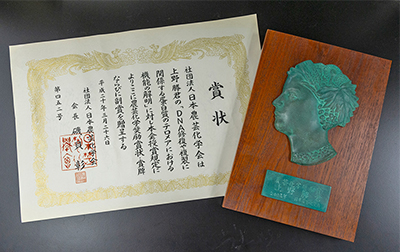 賞状
社団法人日本農芸化学会は
上野 勝君の「DNA修復や複製に
関係する蛋白質のテロメアにおける
機能の解明」に対し本会授賞規定に
よりここに農芸化学奨励賞状・賞牌
ならびに副賞を贈呈する
平成二十年三月二十六日
社団法人 日本農芸化学会
会長 磯貝 彰
第四五二号